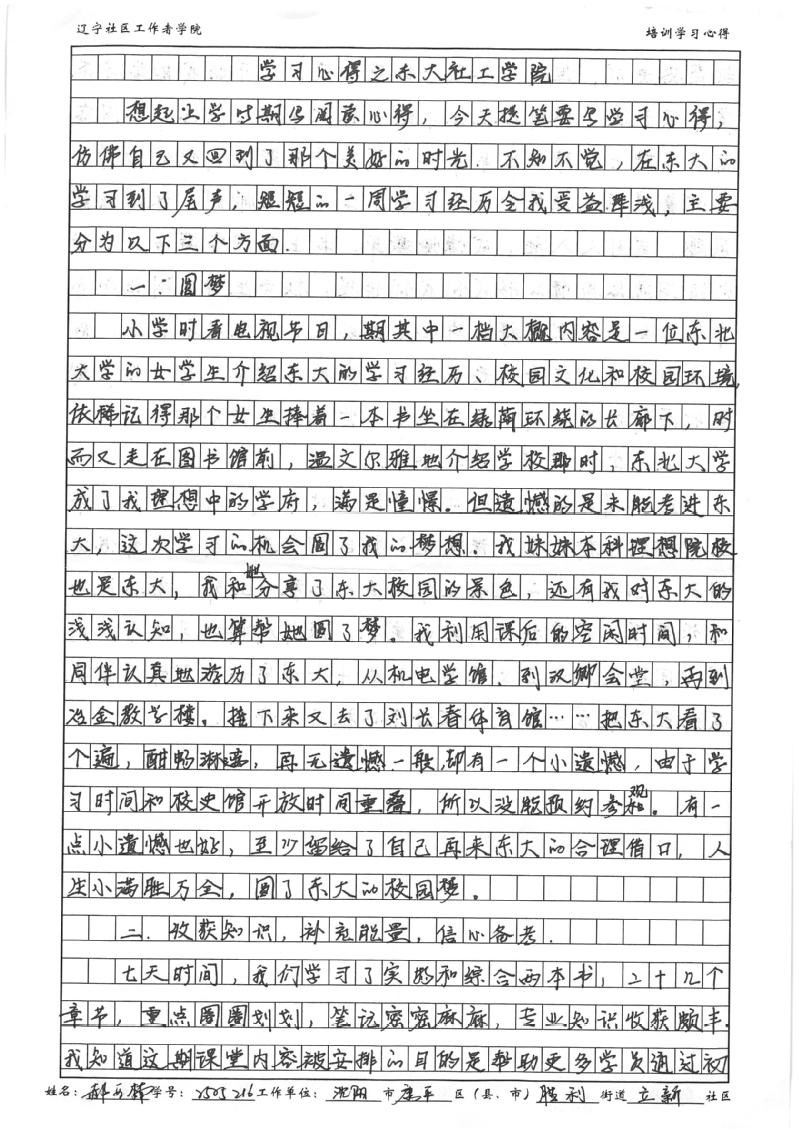 辽宁社区工作者学院 培训学习心得
学习心得之东大社工学院
想起上学时期写阅读心得，今天提笔要写学习心得，
仿佛自己又回到了那个美好的时光．不知不觉，在东大的
学习到了尾声，短短的一周学习经历令我受益匪浅，主要
分为以下三个方面．
一：圆梦
小学时看电视节目，期其中一档大概内容是一位东北
大学的女学生介绍东大的学习经历、校园文化和校园环境，
依稀记得那个女生捧着一本书坐在绿荫环绕的长廊下，时
而又走在图书馆前，温文尔雅地介绍学校那时，东北大学
成了我理想中的学府，满是憧憬。但遗憾的是未能考进东
大，这次学习的机会圆了我的梦想．我妹妹本科理想院校
也是东大，我和她分享了东大校园的景色，还有我对东大的
浅浅认知，也算帮她圆了梦。我利用课后的空闲时间，和
同伴认真地游历了东大，从机电学馆．到汉卿会堂，再到
冶金教学楼。接下来又去了刘长春体育馆……把东大看了
个遍，酣畅淋漓，再无遗憾一般，却有一个小遗憾，由于学
习时间和校史馆开放时间重叠，所以没能预约参观。有一
点小遗憾也好，至少留给了自己再来东大的合理借口，人
生小满胜万全，圆了东大的校园梦。
二．收获知识，补充能量，信心备考．
七天时间，我们学习了实务和综合两本书，二十几个
章节，重点圈圈划划，笔记密密麻麻，专业知识收获颇丰．
我知道这期课堂内容被安排的目的是帮助更多学员通过初
姓名： 学号：2505216 工作单位：沈阳 市 康平 区（县、市） 胜利 街道 立新 社区